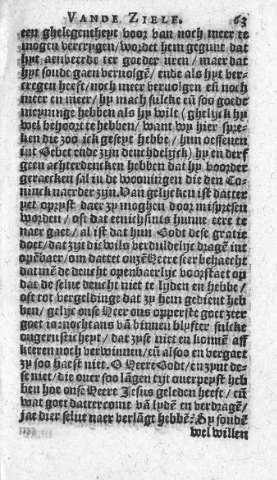 VANDE ZIELE. 63
een ghelegentheyt voor van noch meer te
mogen vercrygen/ wordet hem gegunt dat
hyt aenveerde ter goeder uren/ maer dat
hyt soude gaen vervolgē/ ende als hyt ver-
creegen heeft/ noch meer vervolgen eū noch
meer en meer/ hy mach sulcke eū soo goede
meyninge hebben als hy wilt (ghelijck hy
wel behoort te hebben/ want wy hier spre-
ken die zoo ick geseyt hebbe/ hun oeffenen
int Gebet ende zijn deuchdelijck) hy en derf
geen achterdencken hebben dat hy voorder
geraecken sal in de wooningen die den Co-
ninck naerder zijn. Van gelijcken ist datter
yet opryst daer zy moghen door mispresen
worden/ oft dat eenichsints hunne eere te
naer gaet/ al ist dat hun Godt dese gratie
doet/ dat zijt dicwils verduldelijc dragē int
openbaer/ om dattet onzē Heere seer behaecht
datmē de deucht openbaerlijc voorstaet op
dat de selve deucht niet te lijden en hebbe/
oft tot vergeldinge dat zy hem gedient heb
ben/ gelijc onse Heer ons opperste goet zeer
goet is: nochtans vā binnen blyfter sulcke
ongerusticheyt/ dat zyse niet en konnē aff
keeren noch verwinnen/ eū alsoo en vergaet
zy soo haest niet. O Heere Godt/ en zynt de-
se niet/ die over soo lāgen tijt overpeyst heb
ben hoe onse Heere Jesus geleden heeft/ eū
wat goet datter comt vā lydē en verdragē/
jae dier selve naer verlāgt hebbē? Sy soudē
wel willen